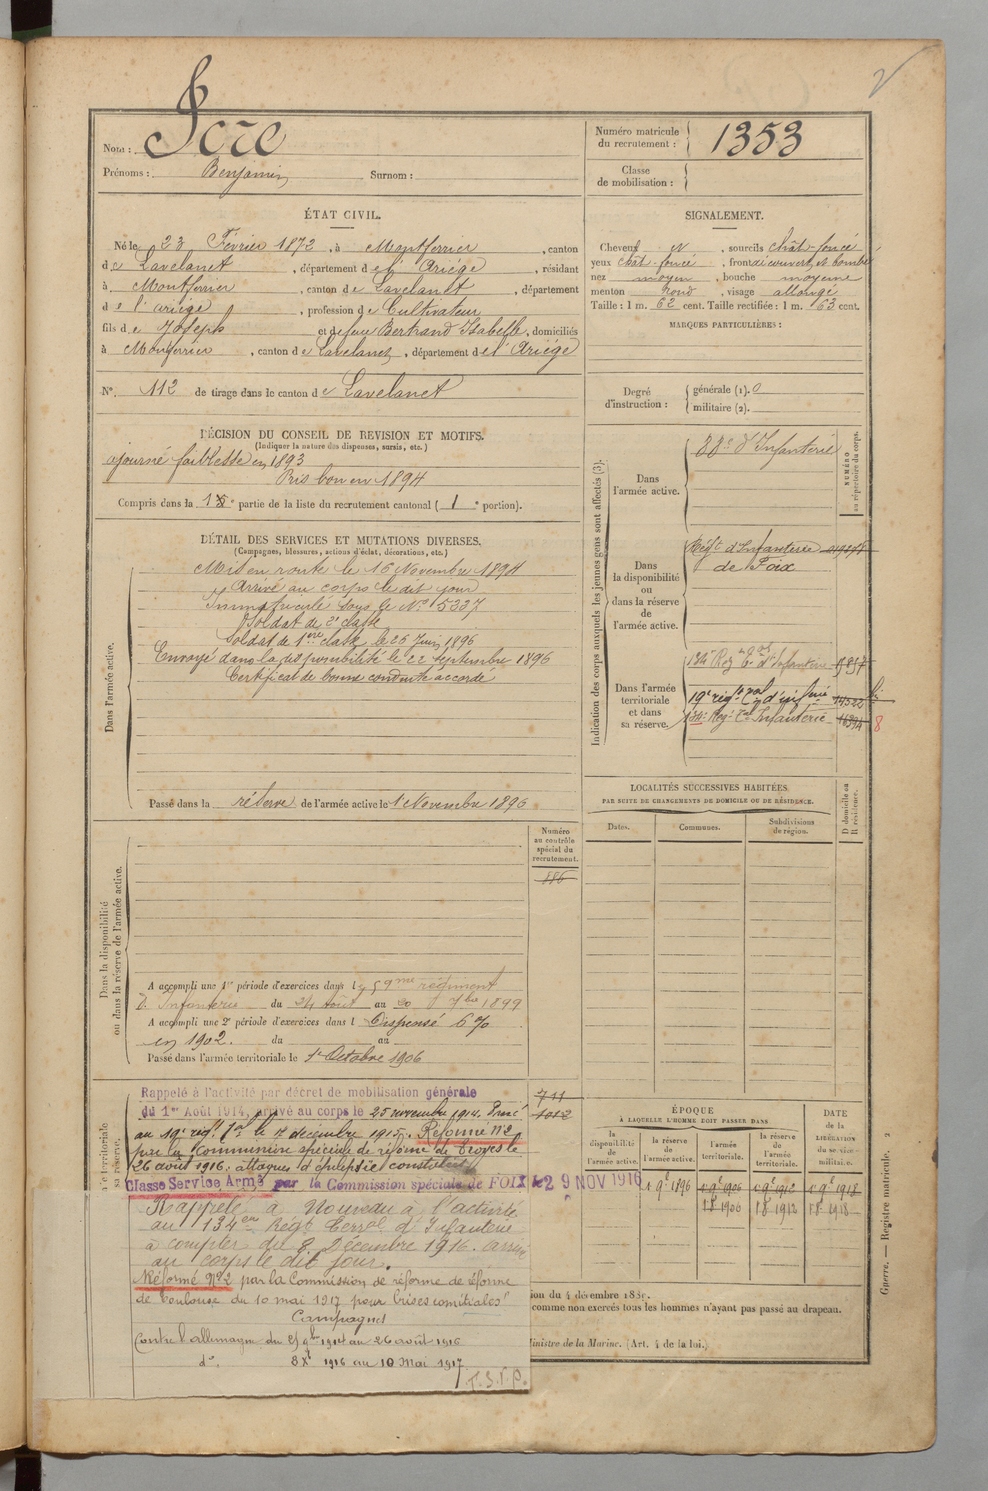 Nom : Icre
Prénoms : Benjamin Surnom :
Numéro matricule du recrutement : 1353
Classe de mobilisation :
ÉTAT CIVIL.
Né le 23 Février 1872, à Montferrier, canton
de Lavelanet, département de l'Ariége, résidant
à Montferrier, canton de Lavelanet, département
de l'ariége, profession de Cultivateur
fils de Joseph et de feu Bertrand Isabelle, domiciliés
à Montferrier, canton de Lavelanet, département de l'Ariége
N° 112 de tirage dans le canton de Lavelanet
SIGNALEMENT.
Cheveux N, sourcils chât-foncé
yeux chât-foncé, front découvert et bombé
nez moyen, bouche moyenne
menton rond, visage allongé
Taille : 1 m. 62 cent. Taille rectifiée : 1 m. 63 cent.
MARQUES PARTICULIÈRES :
Degré d'instruction : générale (1). 0
militaire (2).
DÉCISION DU CONSEIL DE REVISION ET MOTIFS.
(Indiquer la nature des dispenses, sursis, etc.)
ajourné faiblesse en 1893
Pris bon en 1894
Compris dans la 1 e partie de la liste du recrutement cantonal ( 1 e portion).
DÉTAIL DES SERVICES ET MUTATIONS DIVERSES.
(Campagnes, blessures, actions d'éclat, décorations, etc.)
Dans l'armée active.
Mis en route le 16 Novembre 1894
Arrivé au corps le dit jour
Immatriculé sous le N° 5337
Soldat de 2e classe
Soldat de 1ère classe le 25 Juin 1896
Envoyé dans la disponibilité le 22 septembre 1896
Certificat de bonne conduite accordé
Passé dans la réserve de l'armée active le 1 Novembre 1896
Indication des corps auxquels les jeunes gens sont affectés (3).
NUMÉRO au répertoire du corps.
Dans l'armée active.
88e d'Infanterie
Dans la disponibilité ou dans la réserve de l'armée active.
Régt d'Infanterie
de Foix
Dans l'armée territoriale et dans sa réserve.
134 Reg d'Infanterie
19e régt d'infrie 14522
134e Reg. Tal Infanterie 16394 8
LOCALITÉS SUCCESSIVES HABITÉES
PAR SUITE DE CHANGEMENTS DE DOMICILE OU DE RÉSIDENCE.
Dates. Communes. Subdivisions de région. D domicile ou R résidence.
Dans la disponibilité ou dans la réserve de l'armée active.
Numéro au contrôle spécial du recrutement.
886
A accompli une 1re période d'exercices dans le 59me régiment
d'Infanterie du 24 Août au 20 7bre 1899
A accompli une 2e période d'exercices dans l Dispensé 6 %
en 1902. du au
Passé dans l'armée territoriale le 1er Octobre 1906
Rappelé à l'activité par décret de mobilisation générale
du 1er Août 1914, arrivé au corps le 25 novembre 1914. Passé
au 19e régt Tal le 17 décembre 1915. Réformé N°2
par la Commission spéciale de réforme de Troyes le
26 août 1916 : attaques d'épilepsie constatées
Classé Service Armé par la Commission spéciale de FOIX le 29 NOV 1916
Rappelé à Nouveau à l'activité
au 134ème Régt Terral d'Infanterie
à compter du 8 Décembre 1916. arrivé
au corps le dit jour.
Réformé N°2 par la Commission de réforme de réforme
de Toulouse du 10 mai 1917 pour "crises comitiales"
Campagnes
Contre l'allemagne du 25 9bre 1914 au 26 août 1916
do 8 Xbre 1916 au 10 Mai 1917
T.S.V.P.
711
1012
ÉPOQUE
À LAQUELLE L'HOMME DOIT PASSER DANS
DATE DE LA LIBÉRATION du service militaire.
la disponibilité de l'armée active. la réserve de l'armée active. l'armée territoriale. la réserve de l'armée territoriale.
1 9e 1896 1 9e 1906 1 9e 1912 1 9e 1918
1 8 1906 1 8 1912 1 8 1918
comme non exercés tous les hommes n'ayant pas passé au drapeau.
Ministre de la Marine. (Art. 4 de la loi.)
Guerre. — Registre matricule. 2